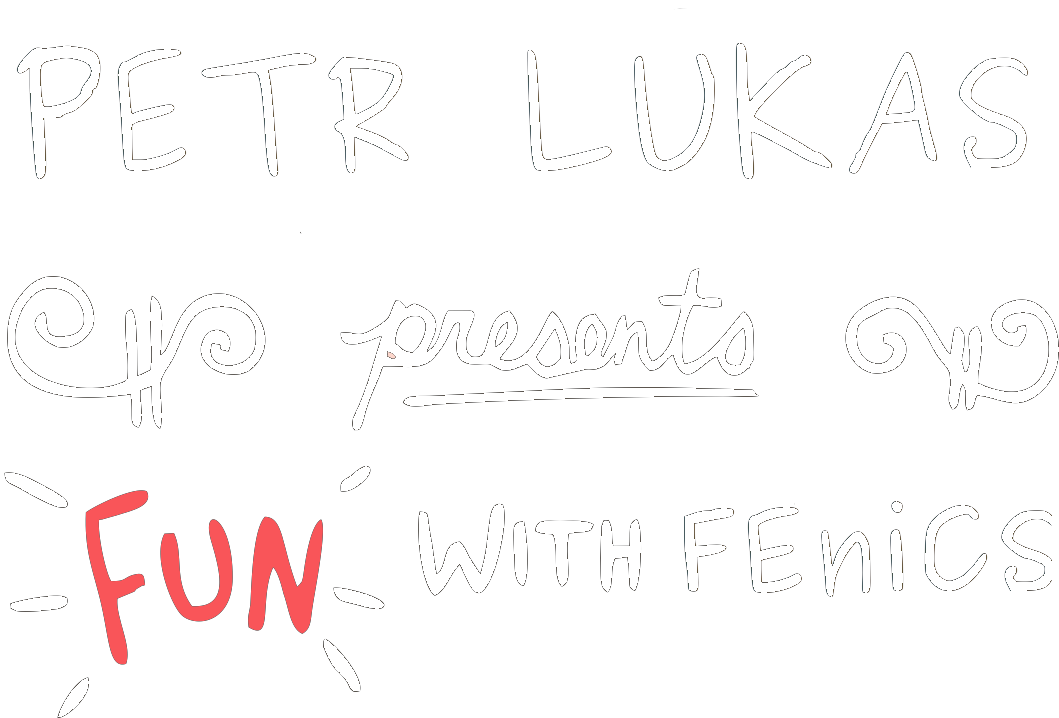 PETR LUKAS
presents
FUN WITH FEniCS